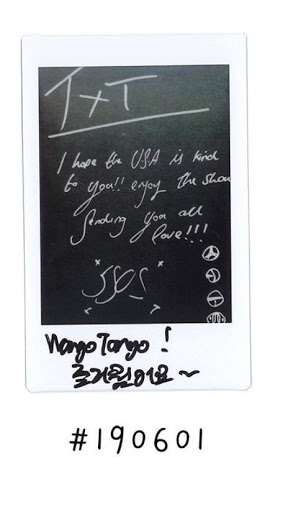 TxT
I hope the USA is kind
to you!! enjoy the show
Sending you all
love!!!
5SOS
Wango Tango !
즐거웠어요~
#190601